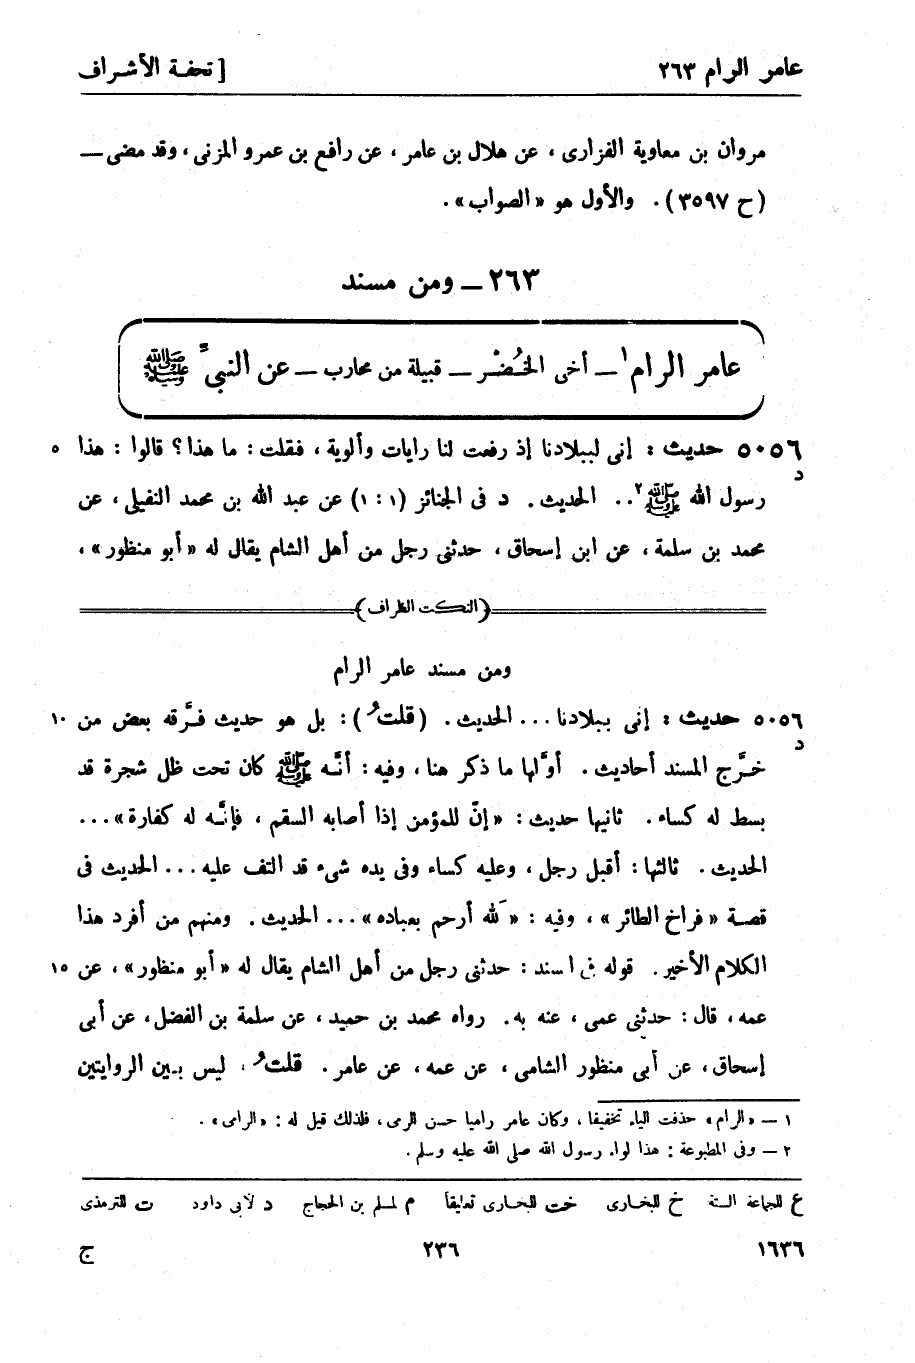 عامر الرام ٢٦٣ [ تحفة الأشراف
مروان بن معاوية الفزارى ، عن هلال بن عامر ، عن رافع بن عمرو المزنى ، وقد مضى ــ
(ح ٣٥٩٧) . والأول هو «الصواب» .
٢٦٣ ــ ومن مسند
عامر الرام¹ ــ أخى الخُضْر ــ قبيلة من محارب ــ عن النبىّ ﷺ
٥٠٥٦ حديث : إنى لببلادنا إذ رفعت لنا رايات وألوية ، فقلت : ما هذا؟ قالوا : هذا ٥
د
رسول الله ﷺ² .. الحديث . د فى الجنائز (١ : ١) عن عبد الله بن محمد النفيلى ، عن
محمد بن سلمة ، عن ابن إسحاق ، حدثنى رجل من أهل الشام يقال له «أبو منظور» ،
(النكت الظراف)
ومن مسند عامر الرام
٥٠٥٦ حديث : إنى ببلادنا ... الحديث . (قلتُ) : بل هو حديث فرَّقه بعض من ١٠
د
خرَّج المسند أحاديث . أوَّلها ما ذكر هنا ، وفيه : أنَّه ﷺ كان تحت ظل شجرة قد
بسط له كساء . ثانيها حديث : «إنّ للمؤمن إذا أصابه السقم ، فإنَّه له كفارة» ...
الحديث . ثالثها : أقبل رجل ، وعليه كساء وفى يده شىء قد التف عليه ... الحديث فى
قصة «فراخ الطائر» ، وفيه : «لَله أرحم بعباده» ... الحديث . ومنهم من أفرد هذا
الكلام الأخير . قوله فى اسند : حدثنى رجل من أهل الشام يقال له «أبو منظور» ، عن ١٥
عمه ، قال : حدثنى عمى ، عنه به . رواه محمد بن حميد ، عن سلمة بن الفضل ، عن أبى
إسحاق ، عن أبى منظور الشامى ، عن عمه ، عن عامر . قلتُ : ليس بين الروايتين
١ ــ «الرام» حذفت الياء تخفيفا ، وكان عامر راميا حسن الرمى ، فلذلك قيل له : «الرامى» .
٢ ــ وفى المطبوعة : هذا لواء رسول الله صلى الله عليه وسلم .
ع للجماعة الستة خ للبخارى خت للبخارى تعليقاً م لمسلم بن الحجاج د لأبى داود ت للترمذى
١٦٣٦ ٢٣٦ ج